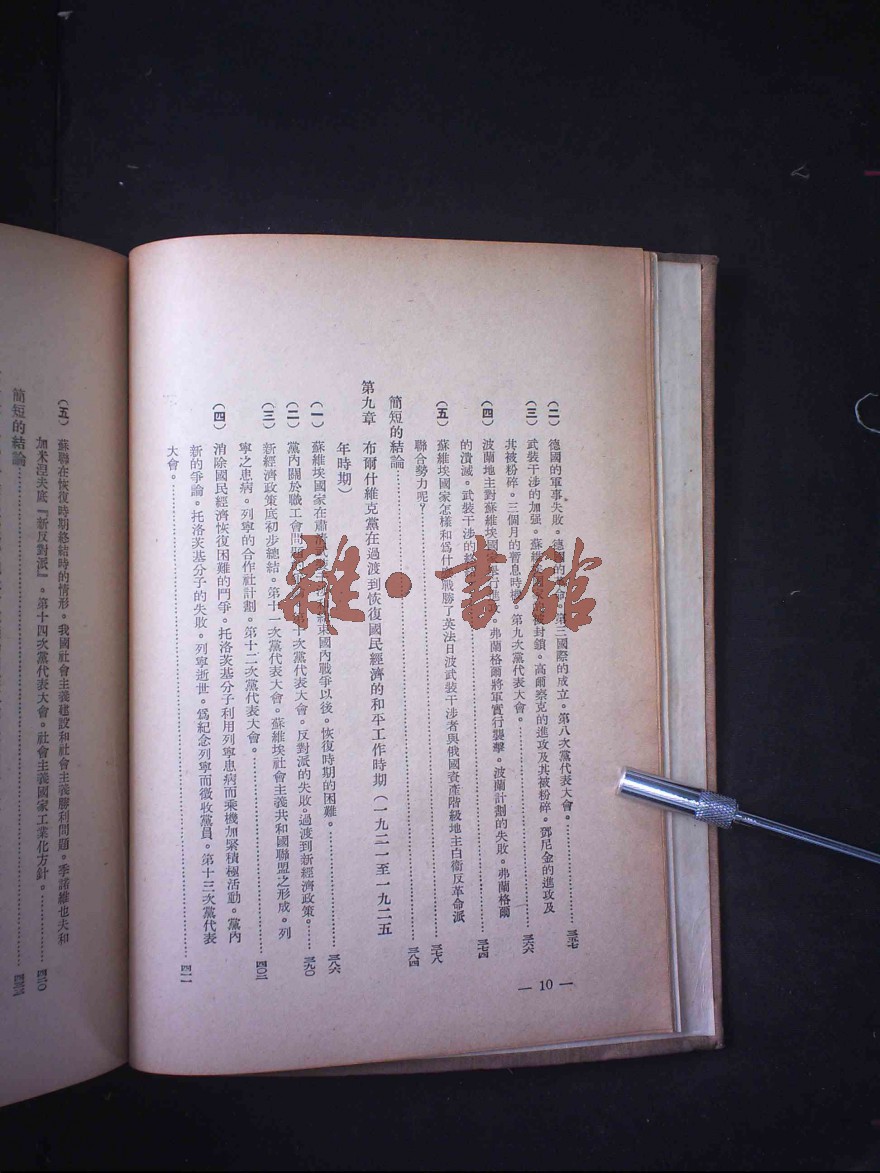 (二) 德國的軍事失敗。德國的革命。第三國際的成立。第八次黨代表大會。……三五七
(三) 武裝干涉的加强。蘇維埃國家被封鎖。高爾察克的進攻及其被粉碎。鄧尼金的進攻及
其被粉碎。三個月的暫息時機。第九次黨代表大會。……三六六
(四) 波蘭地主對蘇維埃國家舉行進攻。弗蘭格爾將軍實行襲擊。波蘭計劃的失敗。弗蘭格爾
的潰滅。武裝干涉的終……三七四
(五) 蘇維埃國家怎樣和爲什麽戰勝了英法日波武裝干涉者與俄國資產階級地主白衛反革命派
聯合勢力呢?……三七八
簡短的結論……三八四
第九章 布爾什維克黨在過渡到恢復國民經濟的和平工作時期(一九二一至一九二五
年時期)
(一) 蘇維埃國家在肅清武裝干涉和結束國內戰爭以後。恢復時期的困難。……三八六
(二) 黨內關於職工會問題的爭論。第十次黨代表大會。反對派的失敗。過渡到新經濟政策。……三九〇
(三) 新經濟政策底初步總結。第十一次黨代表大會。蘇維埃社會主義共和國聯盟之形成。列
寧之患病。列寧的合作社計劃。第十二次黨代表大會。……四〇二
(四) 消除國民經濟恢復困難的鬥爭。托洛茨基分子利用列寧患病而乘機加緊積極活動。黨內
新的爭論。托洛茨基分子的失敗。列寧逝世。爲紀念列寧而徵收黨員。第十三次黨代表
大會。……四一一
— 10 —
(五) 蘇聯在恢復時期終結時的情形。我國社會主義建設和社會主義勝利問題。季諾維也夫和
加米湼夫底『新反對派』。第十四次黨代表大會。社會主義國家工業化方針。……四二〇
簡短的結論……
雜·書館